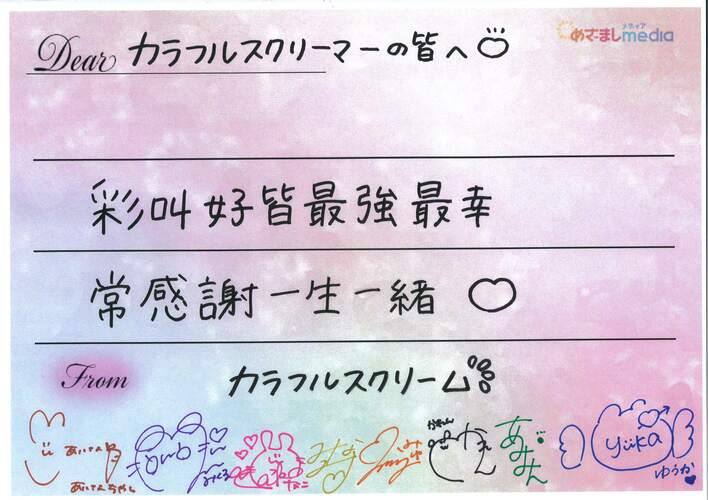 Dear カラフルスクリーマーの皆へ
めざましmedia
メディア
彩叫好皆最強最幸
常感謝一生一緒
From カラフルスクリーム
みゆ
かれん
あみん
yüka
ゆうか